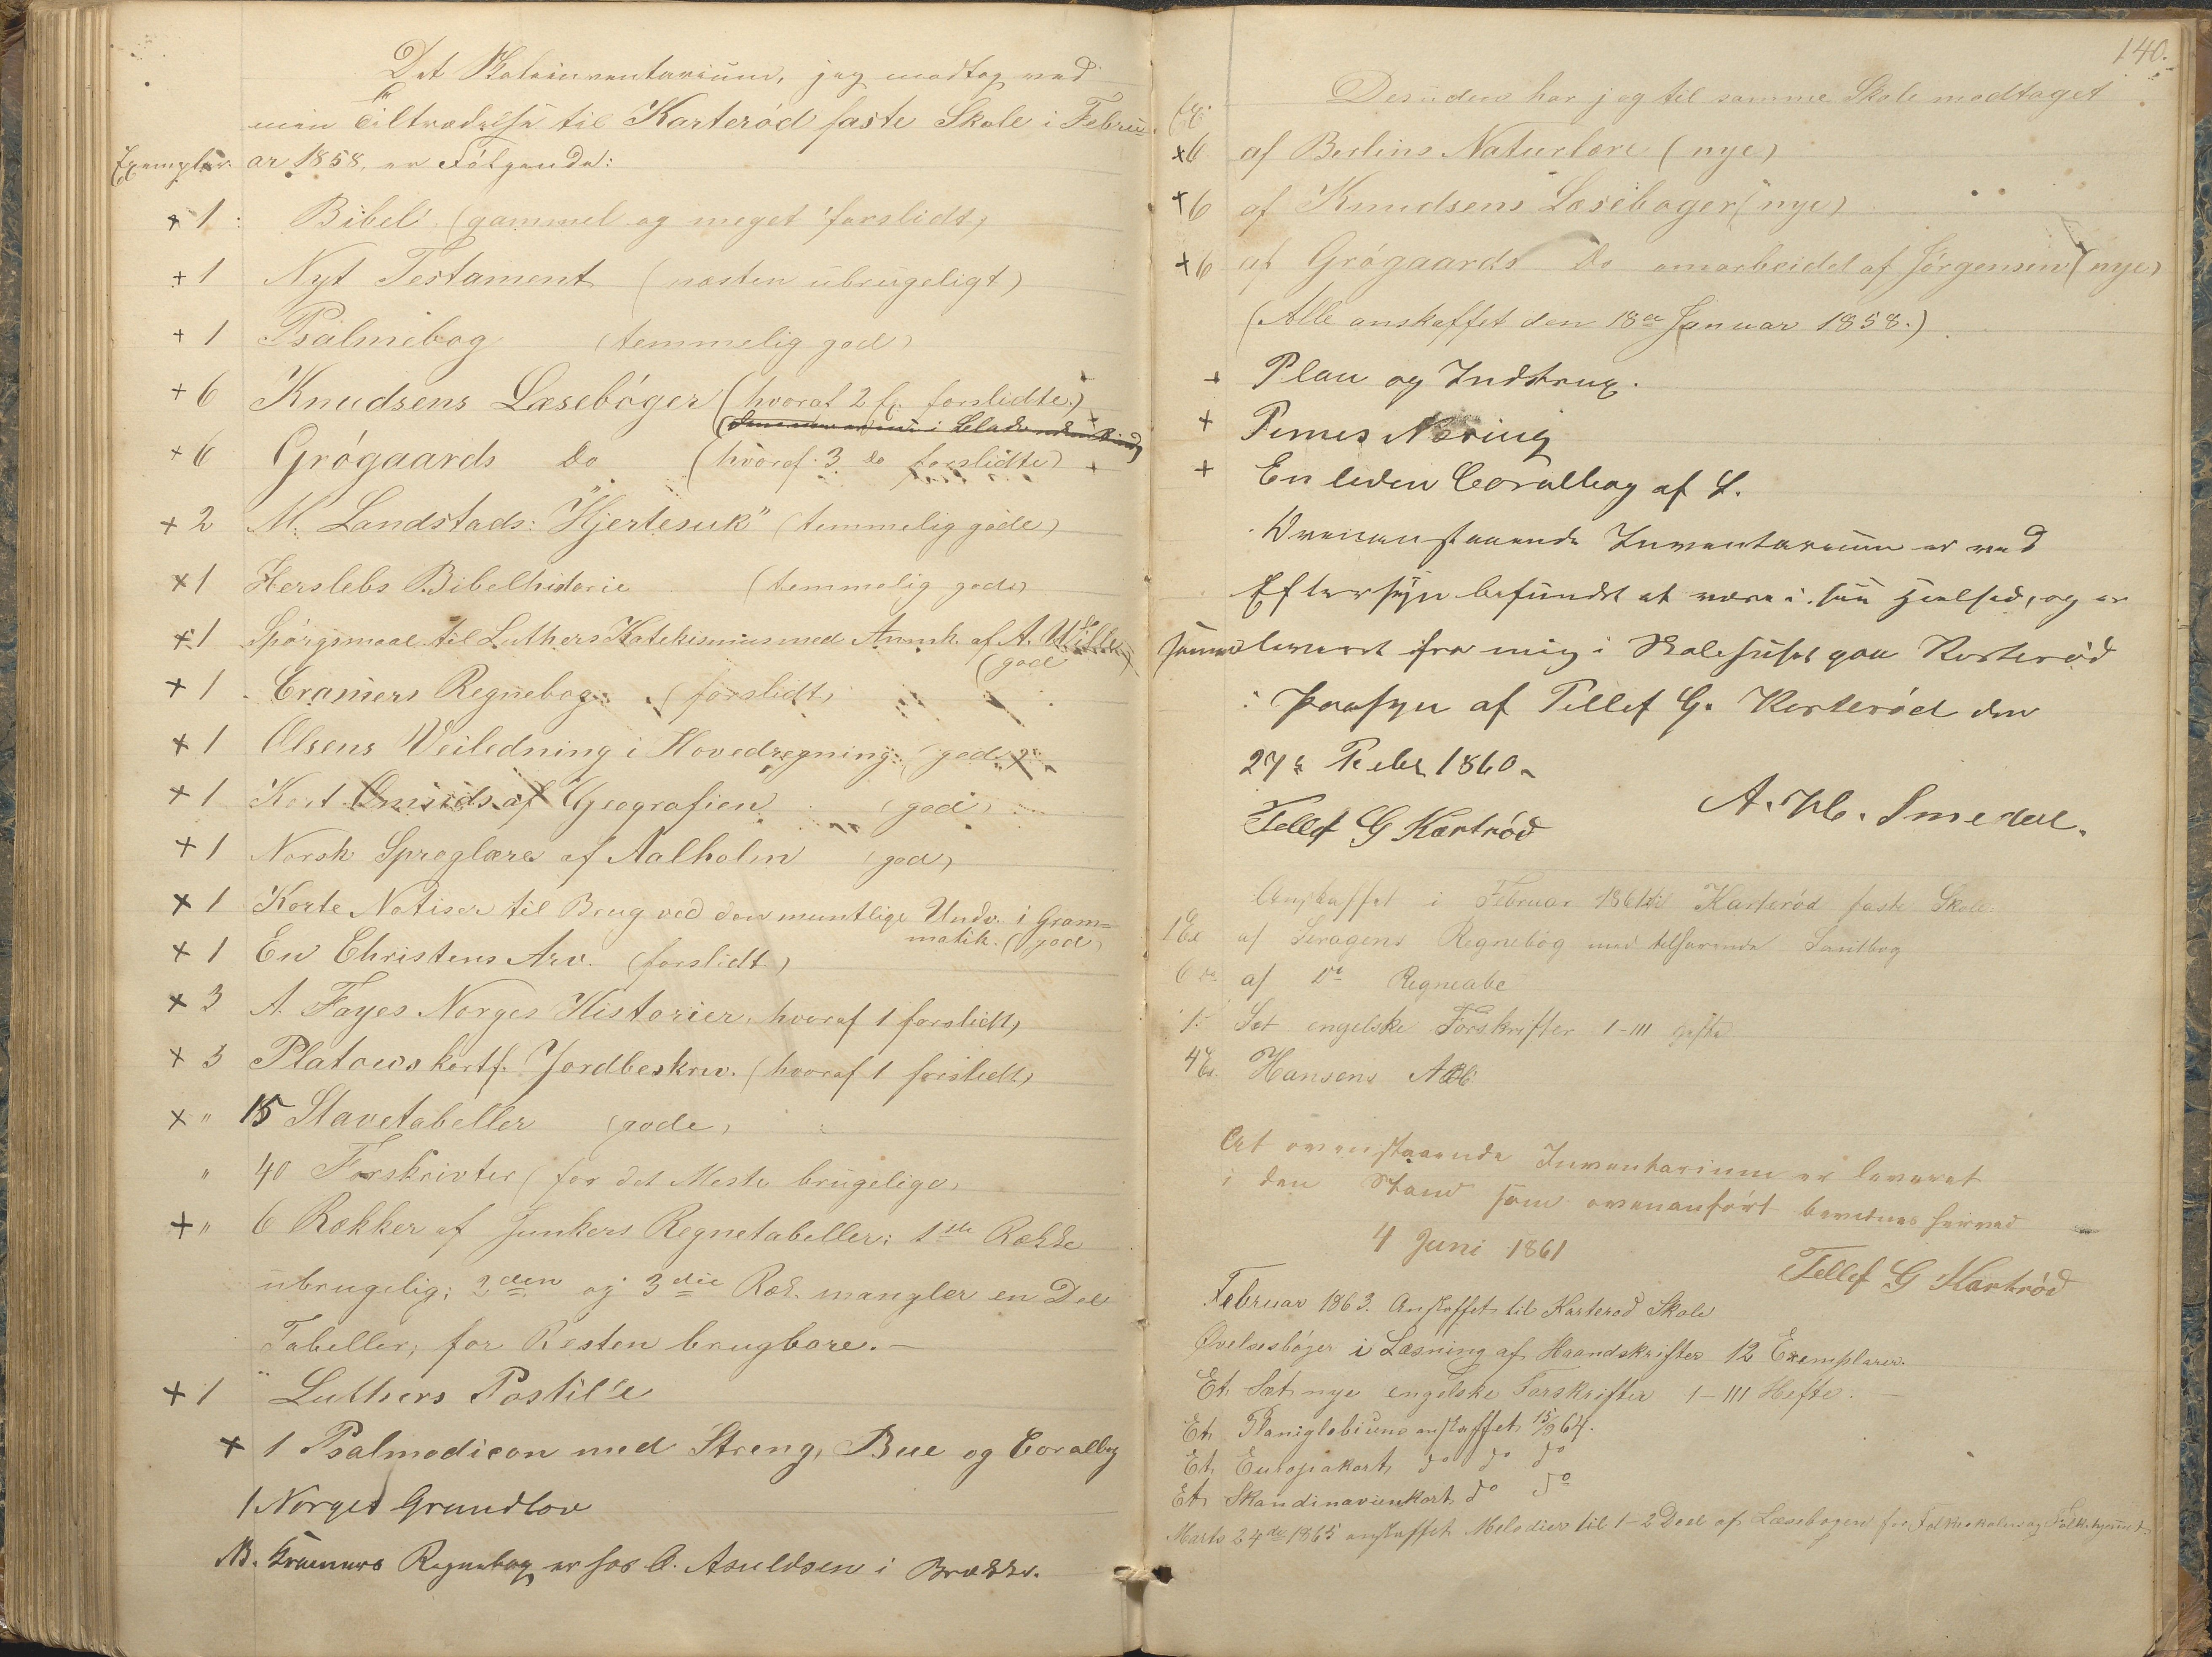 Det Skoleinventarium, jeg modtog ved
min Tiltrædelse til Karterød faste Skole i Febru-
Exemplar. ar 1858, er Følgende:
+ 1 : Bibel (gammel og meget forslidt)
+ 1 Nyt Testament (næsten ubrugeligt)
+ 1 Psalmebog (temmelig god)
+ 6 Knudsens Læsebøger (hvoraf 2 Ex. forslidte)
+ 6 Grøgaards Do (hvoraf 3 Do forslidte) +
+ 2 M. Landstads: "Hjertesuk" (temmelig gode)
+ 1 Herslebs Bibelhistorie (temmelig gode)
+ 1 Spørgsmaal til Luthers Katekismus med Anmk. af A. Wille
(god)
+ 1 Cramers Regnebog (forslidt)
+ 1 Olsens Veiledning i Hovedregning (god)
+ 1 Kort Omrids af Geografien (god)
+ 1 Norsk Sproglære af Aalholm (god)
+ 1 Korte Notiser til Brug ved den muntlige Undv. i Gram-
matik. (god)
+ 1 En Christens Arv. (forslidt)
+ 3 A. Fayes Norges Historier, hvoraf 1 forslidt)
+ 3 Platous kortf. Jordbeskriv. (hvoraf 1 forslidt)
+ " 15 Stavetabeller (gode)
" 40 Forskrivter (for det Meste brugelige)
+ " 6 Rækker af Junkers Regnetabeller; 1ste Række
ubrugelig; 2den og 3die Ræk. mangler en Del
Tabeller, for Resten brugbare. —
+ 1 Luthers Postille
+ 1 Psalmodicon med Streng, Bue og Coralbog
1 Norges Grundlov
NB. Kramers Regnebog er hos O. Asuldsen i Brække.
140.
Desuden har jeg til samme Skole modtaget
Ex.
+6 af Berlins Naturlære (nye)
+6 af Knudsens Læsebøger (nye)
+6 af Grøgaards Do omarbeidet af Jørgensen (nye)
(Alle anskaffet den 18de Januar 1858.)
+ Plan og Indstrux.
+
+ En liden Coralbog af L.
Ovenanstaaende Inventarium er ved
Eftersyn befundet at være i sin Helhed, og er
leveret fra mig i Skolehuset paa Karterød
i Paasyn af Tellef G. Karterød den
27 Febr 1860.
A. Chr. Smedal.
Tellef G Kartrød
Anskaffet i Februar 1861 til Karterød faste Skole:
1 Ex af Regnebog med tilhørende Facitbog
6 Do af Do Regneabc
1. Sæt engelske Forskrifter 1-III Hefte
4 Ex. Hansens Abc
At ovenstaaende Inventarium er leveret
i den Stand som ovenanført bevidnes herved
4 Juni 1861
Tellef G Kartrød
Februar 1863. Anskaffet til Karterød Skole
Øvelsesbøger i Læsning af Haandskrifter 12 Exemplarer.
Et Sæt nye engelske Forskrifter 1-III Hefte. —
Et Planiglobium anskaffet 15/9 64.
Et Europakart do do do
Et Skandinavienkort do do
Marts 24de 1865 anskaffet Melodier til 1-2 Deel af Læsebogen for Folkeskolen og Folkehjemmet